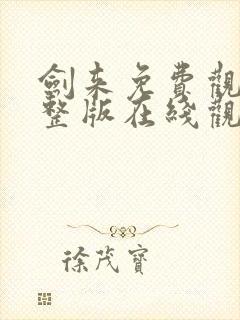 劍来免費觀
整版在綫觀
徐茂寶